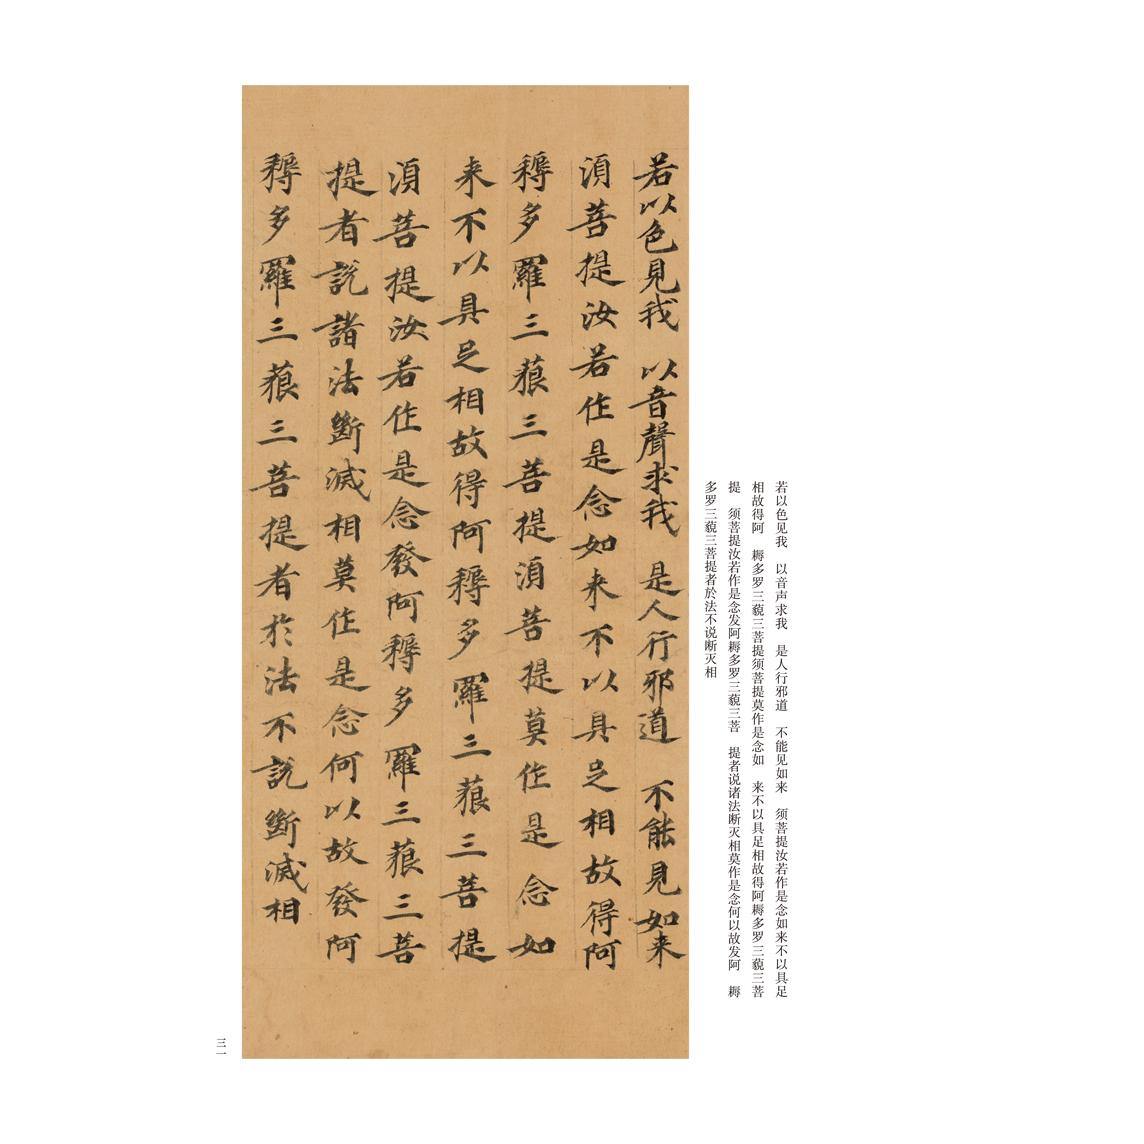 若以色見我　以音聲求我　是人行邪道　不能見如来
湏菩提汝若作是念如来不以具足相故得阿
耨多羅三藐三菩提湏菩提莫作是念如
来不以具足相故得阿耨多羅三藐三菩提
湏菩提汝若作是念發阿耨多羅三藐三菩
提者説諸法斷滅相莫作是念何以故發阿
耨多羅三藐三菩提者於法不説斷滅相
若以色见我　以音声求我　是人行邪道　不能见如来　须菩提汝若作是念如来不以具足
相故得阿　耨多罗三藐三菩提须菩提莫作是念如　来不以具足相故得阿耨多罗三藐三菩
提　须菩提汝若作是念发阿耨多罗三藐三菩　提者说诸法断灭相莫作是念何以故发阿　耨
多罗三藐三菩提者於法不说断灭相
三一